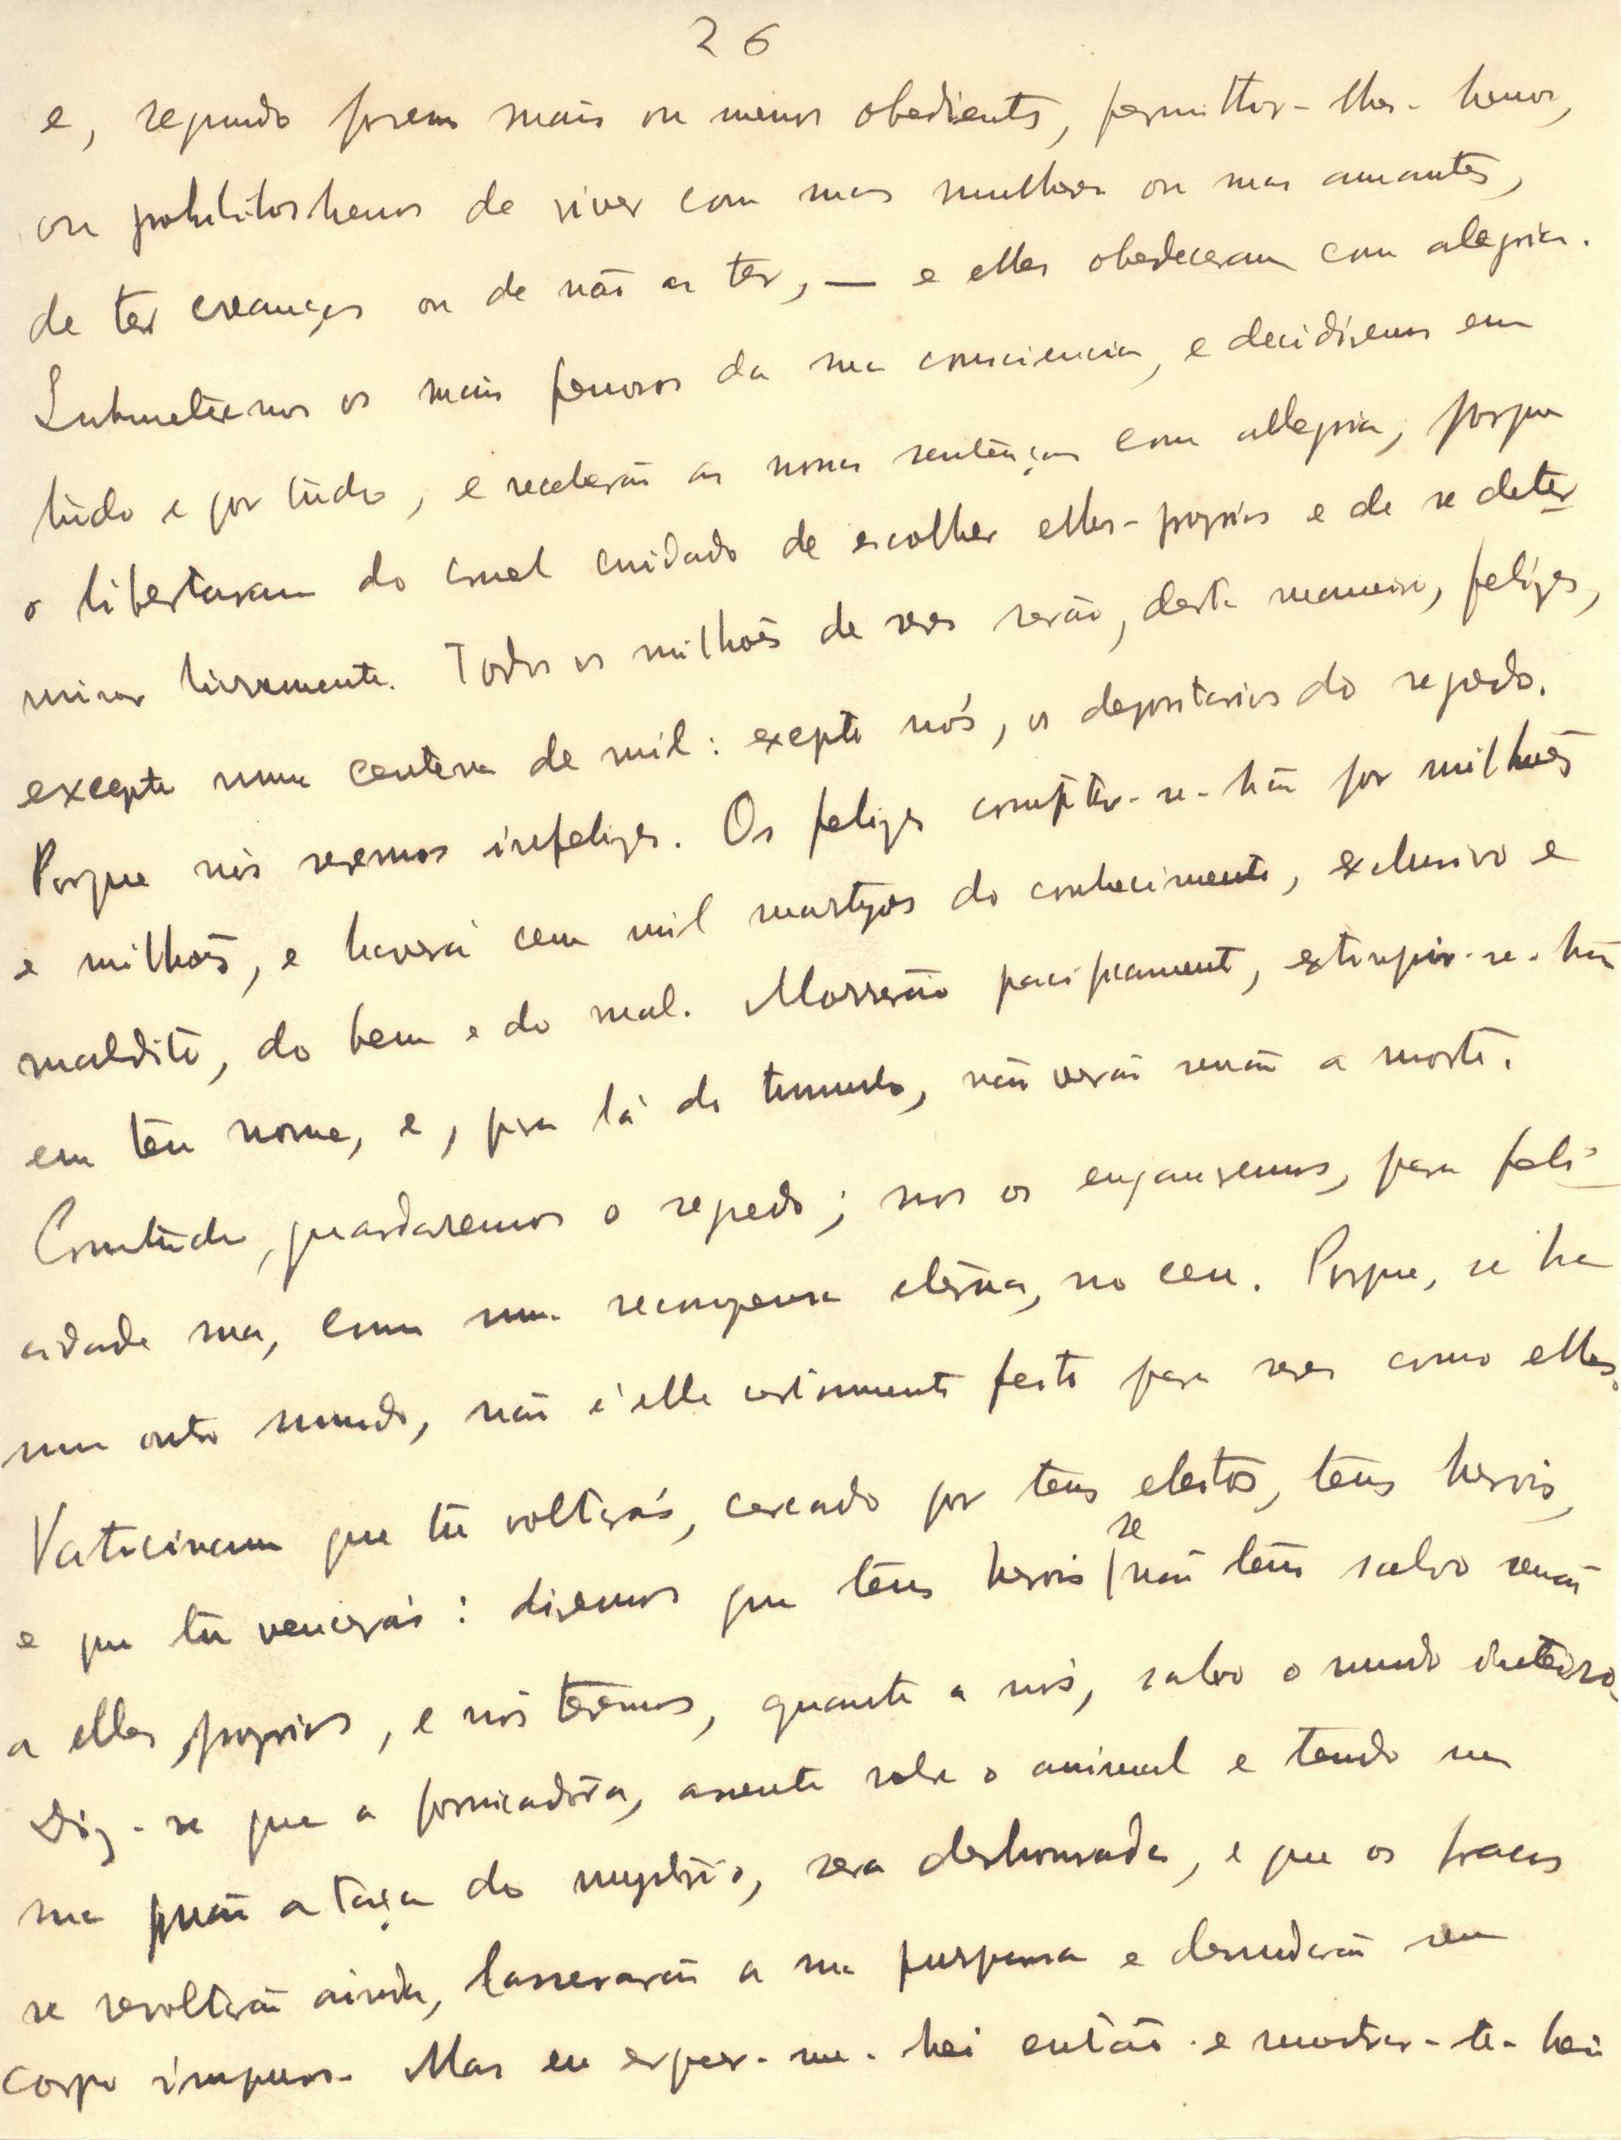 26
e, segundo forem mais ou menos obedientes, permittir-lhes-hemos,
ou prohibilos-hemos de viver com suas mulheres ou suas amantes,
de ter creanças ou de não as ter, — e elles obedeceram com alegria.
Submeter-nos os mais penosos da sua consciencia, e decidiremos em
tudo e por tudo, e receberão as nossas sentenças com allegria, porque
o libertaram do cruel cuidado de escolher elles-proprios e de se deter
minar livremente. Todos os milhões de seres serão, desta maneira, felizes,
excepto uma centena de mil: excepto nós, os depositarios do segredo.
Porque nós seremos infelizes. Os felizes compter-se-hão por milhões
e milhões, e haverá cem mil martyres do conhecimento, exclusivo e
maldito, do bem e do mal. Morrerão pacificamente, extinguir-se-hão
em teu nome, e, pra lá do tumulo, não verão senão a morte.
Comtudo, guardaremos o segredo; nos os enganaremos, para feli-
cidade sua, com uma recompensa eterna, no ceu. Porque, se ha
um outro mundo, não é elle certamente feito para seres como elles.
Vaticinam que tu voltarás, cercado por teus eleitos, teus herois,
e que tu vencerás: diremos que teus herois se não têm salvo senão
a elles proprios, e nós teremos, quanto a nós, salvo o mundo inteiro.
Diz-se que a fornicadora, assente sobre o animal e tendo na
sua mão a taça do mysterio, sera deshonrada, e que os fracos
se revoltarão ainda, lacerarão a sua purpura e desnudarão seu
corpo impuro. Mas eu erguer-me-hei então e mostrar-te-hei